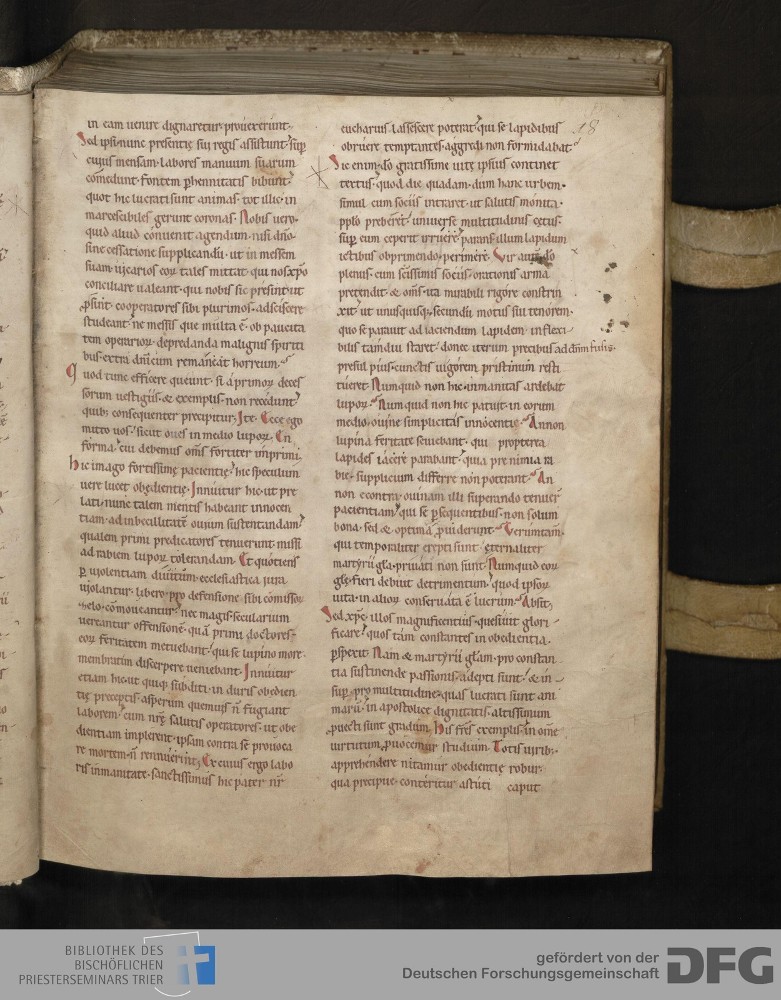 in eam uenire dignaretur prouexerunt.
Sed ipsi nunc presentię sui regis assistunt. sup
cuius mensam labores manuum suarum
comedunt. fontem phennitatis bibunt.
quot hic lucrati sunt animas. tot illic in
marcescibiles gerunt coronas. Nobis uero.
quid aliud conuenit agendum. nisi dn̄o
sine cessatione supplicandū. ut in messem
suam uicarios eoꝝ tales mittat. qui nos xp̄o
conciliare ualeant. qui nobis sic presint. ut
ꝓsint. cooperatores sibi plurimos. adsciscere
studeant. ne messis que multa ē. ob paucita
tem operarioꝝ. depredanda malignis spiriti
bus. extra dn̄icum remaneat horreum.
Quod tunc efficere queunt. si a primoꝝ deces
sorum uestigiis. & exemplis. non recedunt.
quib; consequenter precipitur. Ite. Ecce ego
mitto uos. sicut oues in medio lupoꝝ. En
forma. cui debemus om̄s fortiter inprimi.
hic imago fortissimę pacientię. hic speculum
uere lucet obędientię. Innuitur hic. ut pre
lati. nunc talem mentis habeant innocen
tiam. ad inbecillitatē ouium sustentandam.
qualem primi predicatores tenuerunt missi
ad rabiem lupoꝝ tolerandam. Et quotiens
ꝑ uiolentiam diuitum. ecclesiastica iura
uiolantur. libero ꝓ defensione sibi comissoꝝ
zelo. comoueantur. nec magis secularium
uereantur offensionē. quā primi doctores.
eoꝝ feritatem metuebant. qui se lupino more
membratim discerpere ueniebant. Innuitur
etiam hic. ut quiq; subditi. in duris obedien
tię preceptis. asperum quemuis n̄ fugiant
laborem. cum nr̄ę salutis operatores. ut obe
dientiam implerent. ipsam contra sē prouoca
re mortem. n̄ rennuerint. Ex cuius ergo labo
ris inmanitate. sanctissimus hic pater nr̄
eucharius. lassescere poterat. qui se lapidibus
obruere temptantes. aggredi non formidabat.
Sic enim. do gratissime uitę ipsius continet
textus. quod die quadam. dum hanc urbem.
simul cum sociis intraret. ut salutis monita.
pplo preberet. uniuerse multitudinis cetus.
sup eum cepit irruere. parans illum lapidum
ictibus obprimendo. perimere. Vir autē do
plenus. cum scissimis sociis. orationis arma
pretendit. & om̄s ita mirabili rigore constrin
xit. ut unusquisq; secundū motus sui tenorem.
quo se parauit ad iaciendum lapidem. inflexi
bilis tamdiu staret. donec iterum precibus ad dominum fusis.
presul pius. cunctis uigorem pristinum resti
tueret. Numquid non hic inmanitas ardebat
lupoꝝ. Numquid non hic patuit. in eorum
medio. ouine simplicitas innocentię. Annon
lupina feritate seuiebant. qui propterea
lapides iacere parabant. quia pre nimia ra
bie. supplicium differre non poterant. An
non econtra. ouinam illi superando tenuer̄
pacientiam. qui se psequentibus. non solum
bona. sed & optima puiderunt. Verumtam̄.
qui temporaliter erepti sunt. eternaliter
martyrii gla. priuati non sunt. Numquid eoꝝ
glę. fieri debuit detrimentum. quod ipsoꝝ
uita. in alioꝝ conseruata ē lucrum. Absit.
Sed xpe. illos magnificentius. quesiuit glori
ficare. quos tam constantes in obedientia.
pspexit. Nam & martyrii glam. pro constan
tia sustinende passionis. adepti sunt. & in
sup. pro multitudine. quas lucrati sunt ani
marū. in apostolicę dignitatis. altissimum
puecti sunt gradum. His frēs exemplis. in om̄e
uirtutum. puocemur studium. Totis uirib;
apprehendere nitamur obedientię robur.
qua precipue. conteritur astuti caput
18
BIBLIOTHEK DES
BISCHÖFLICHEN
PRIESTERSEMINARS TRIER
gefördert von der
Deutschen Forschungsgemeinschaft
DFG